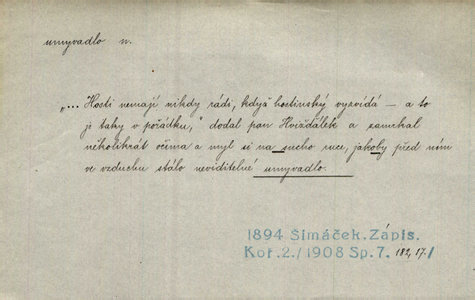 umyvadlo n.
„... Hosti nemají nikdy rádi, když hostinský vyzvídá – a to
je taky v pořádku,“ dodal pan Hvižďálek a zamrkal
několikrát očima a myl si na sucho ruce, jakoby před ním
ve vzduchu stálo neviditelné umyvadlo.
1894 Šimáček. Zápis.
Koř. 2./1908 Sp. 7. 182, 17./